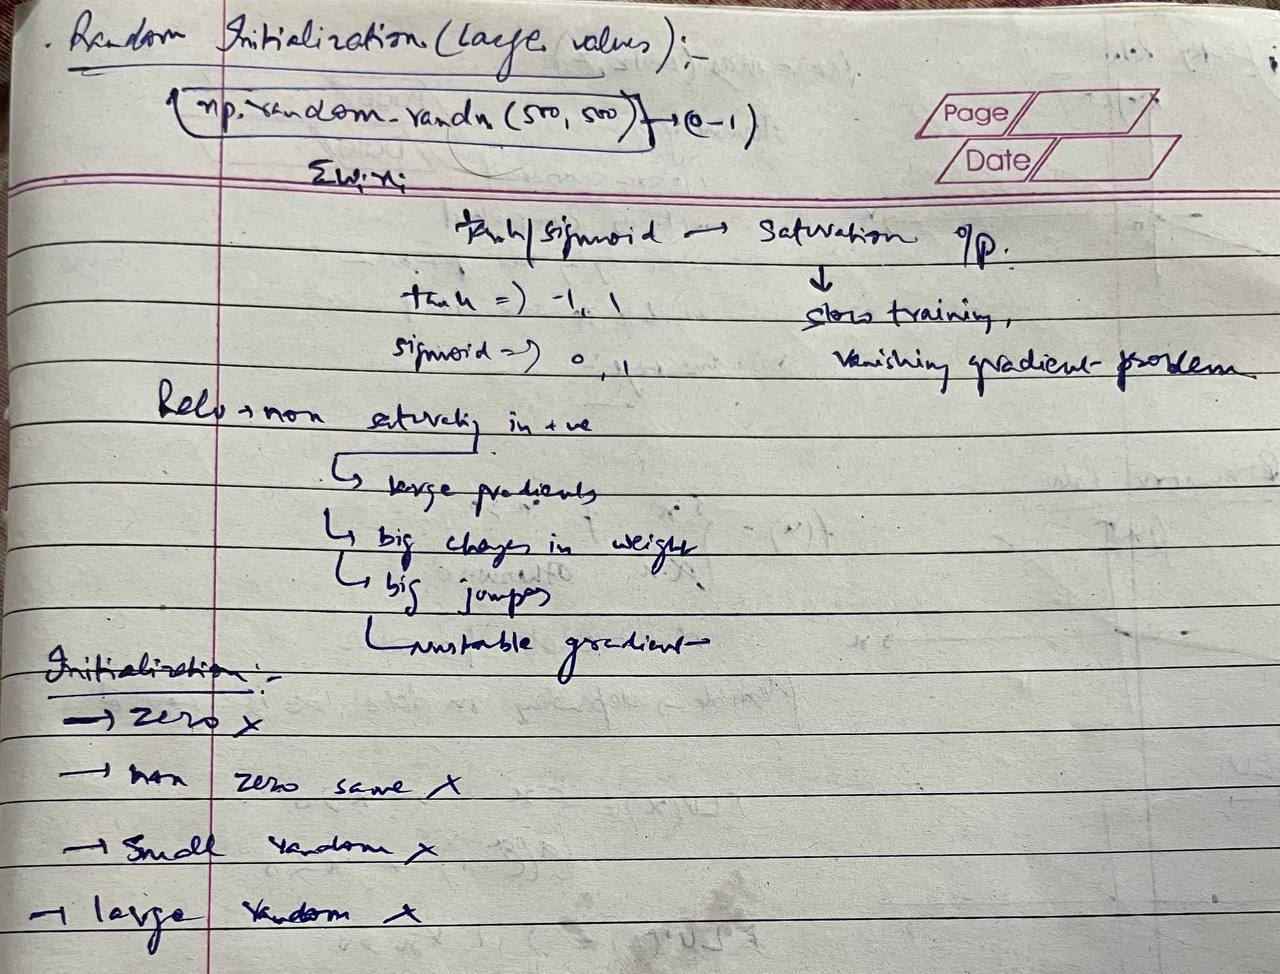 . Random Initialization (large values) :-
np.random.randn (500, 500) → (0-1)
Page
Date
Σwixi
tanh/sigmoid → saturation o/p.
↓
tanh => -1, 1
slow training,
sigmoid => 0, 1
vanishing gradient problem
Relu → non saturating in +ve
↳ large gradients
↳ big changes in weight
↳ big jumps
↳ unstable gradient
Initialization :-
→ zero x
→ non zero same x
→ small random x
→ large random x